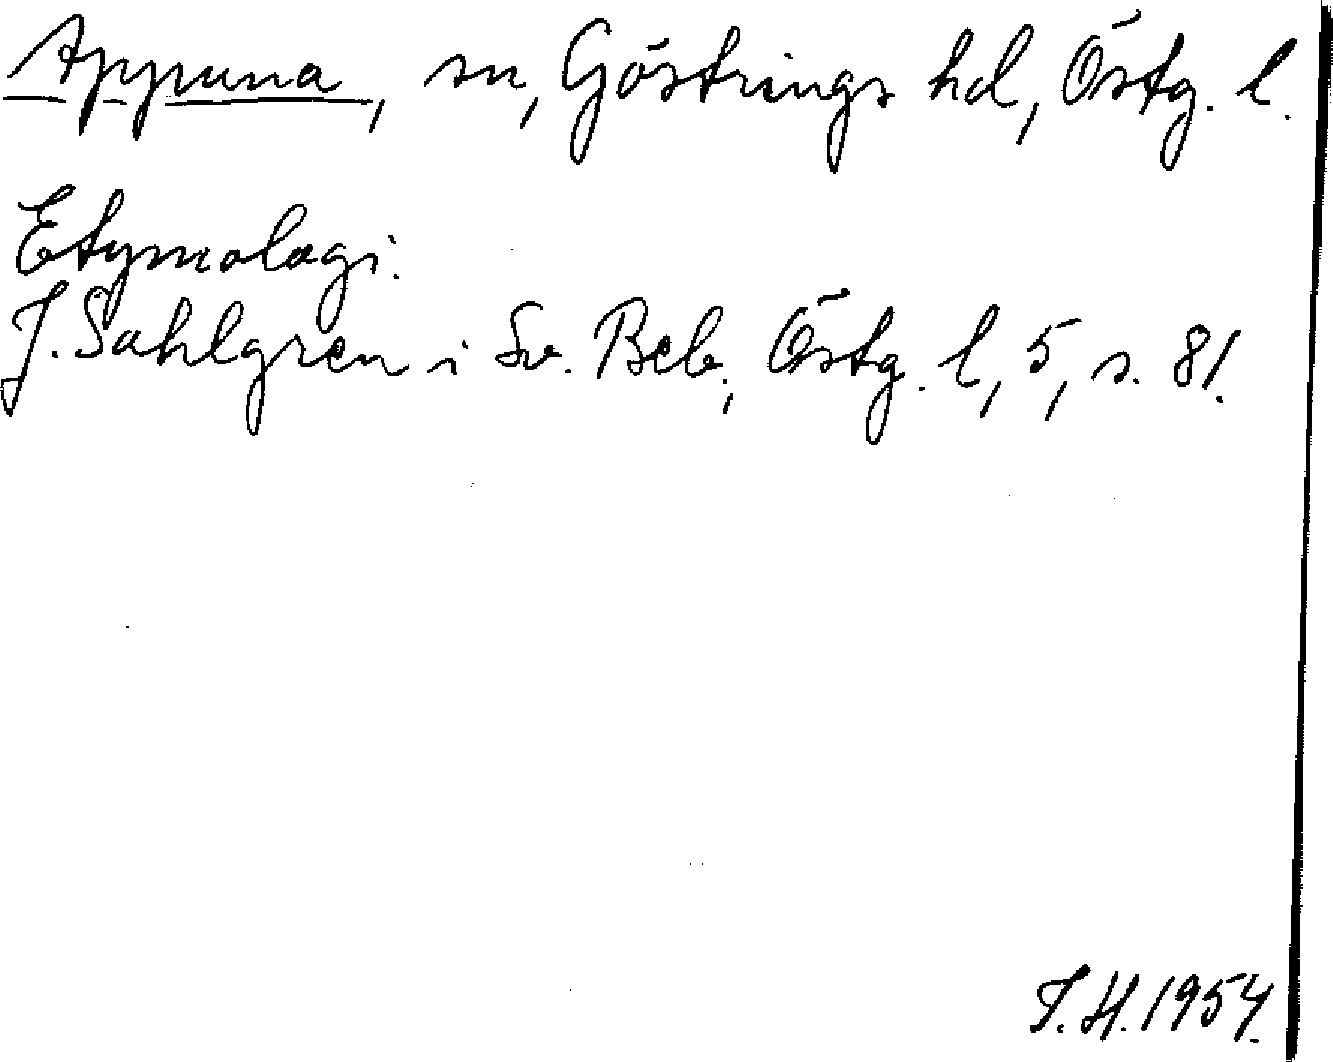 Appuna, sn, Göstrings hd, Östg. l.
Etymologi.
J. Sahlgren i Sv. Beb., Östg. l, 5, s. 81.
T.H. 1954.